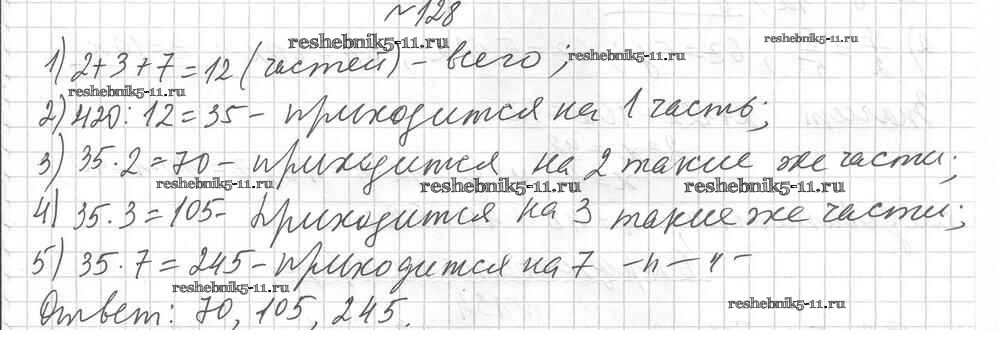 №128
reshebnik5-11.ru
reshebnik5-11.ru
1) 2+3+7=12 (частей) - всего;
reshebnik5-11.ru
reshebnik5-11.ru
2) 420:12=35 - приходится на 1 часть;
3) 35·2=70 - приходится на 2 такие же части;
reshebnik5-11.ru
reshebnik5-11.ru
reshebnik5-11.ru
4) 35·3=105 - приходится на 3 такие же части;
5) 35·7=245 - приходится на 7 -"-"-
reshebnik5-11.ru
reshebnik5-11.ru
Ответ: 70, 105, 245.